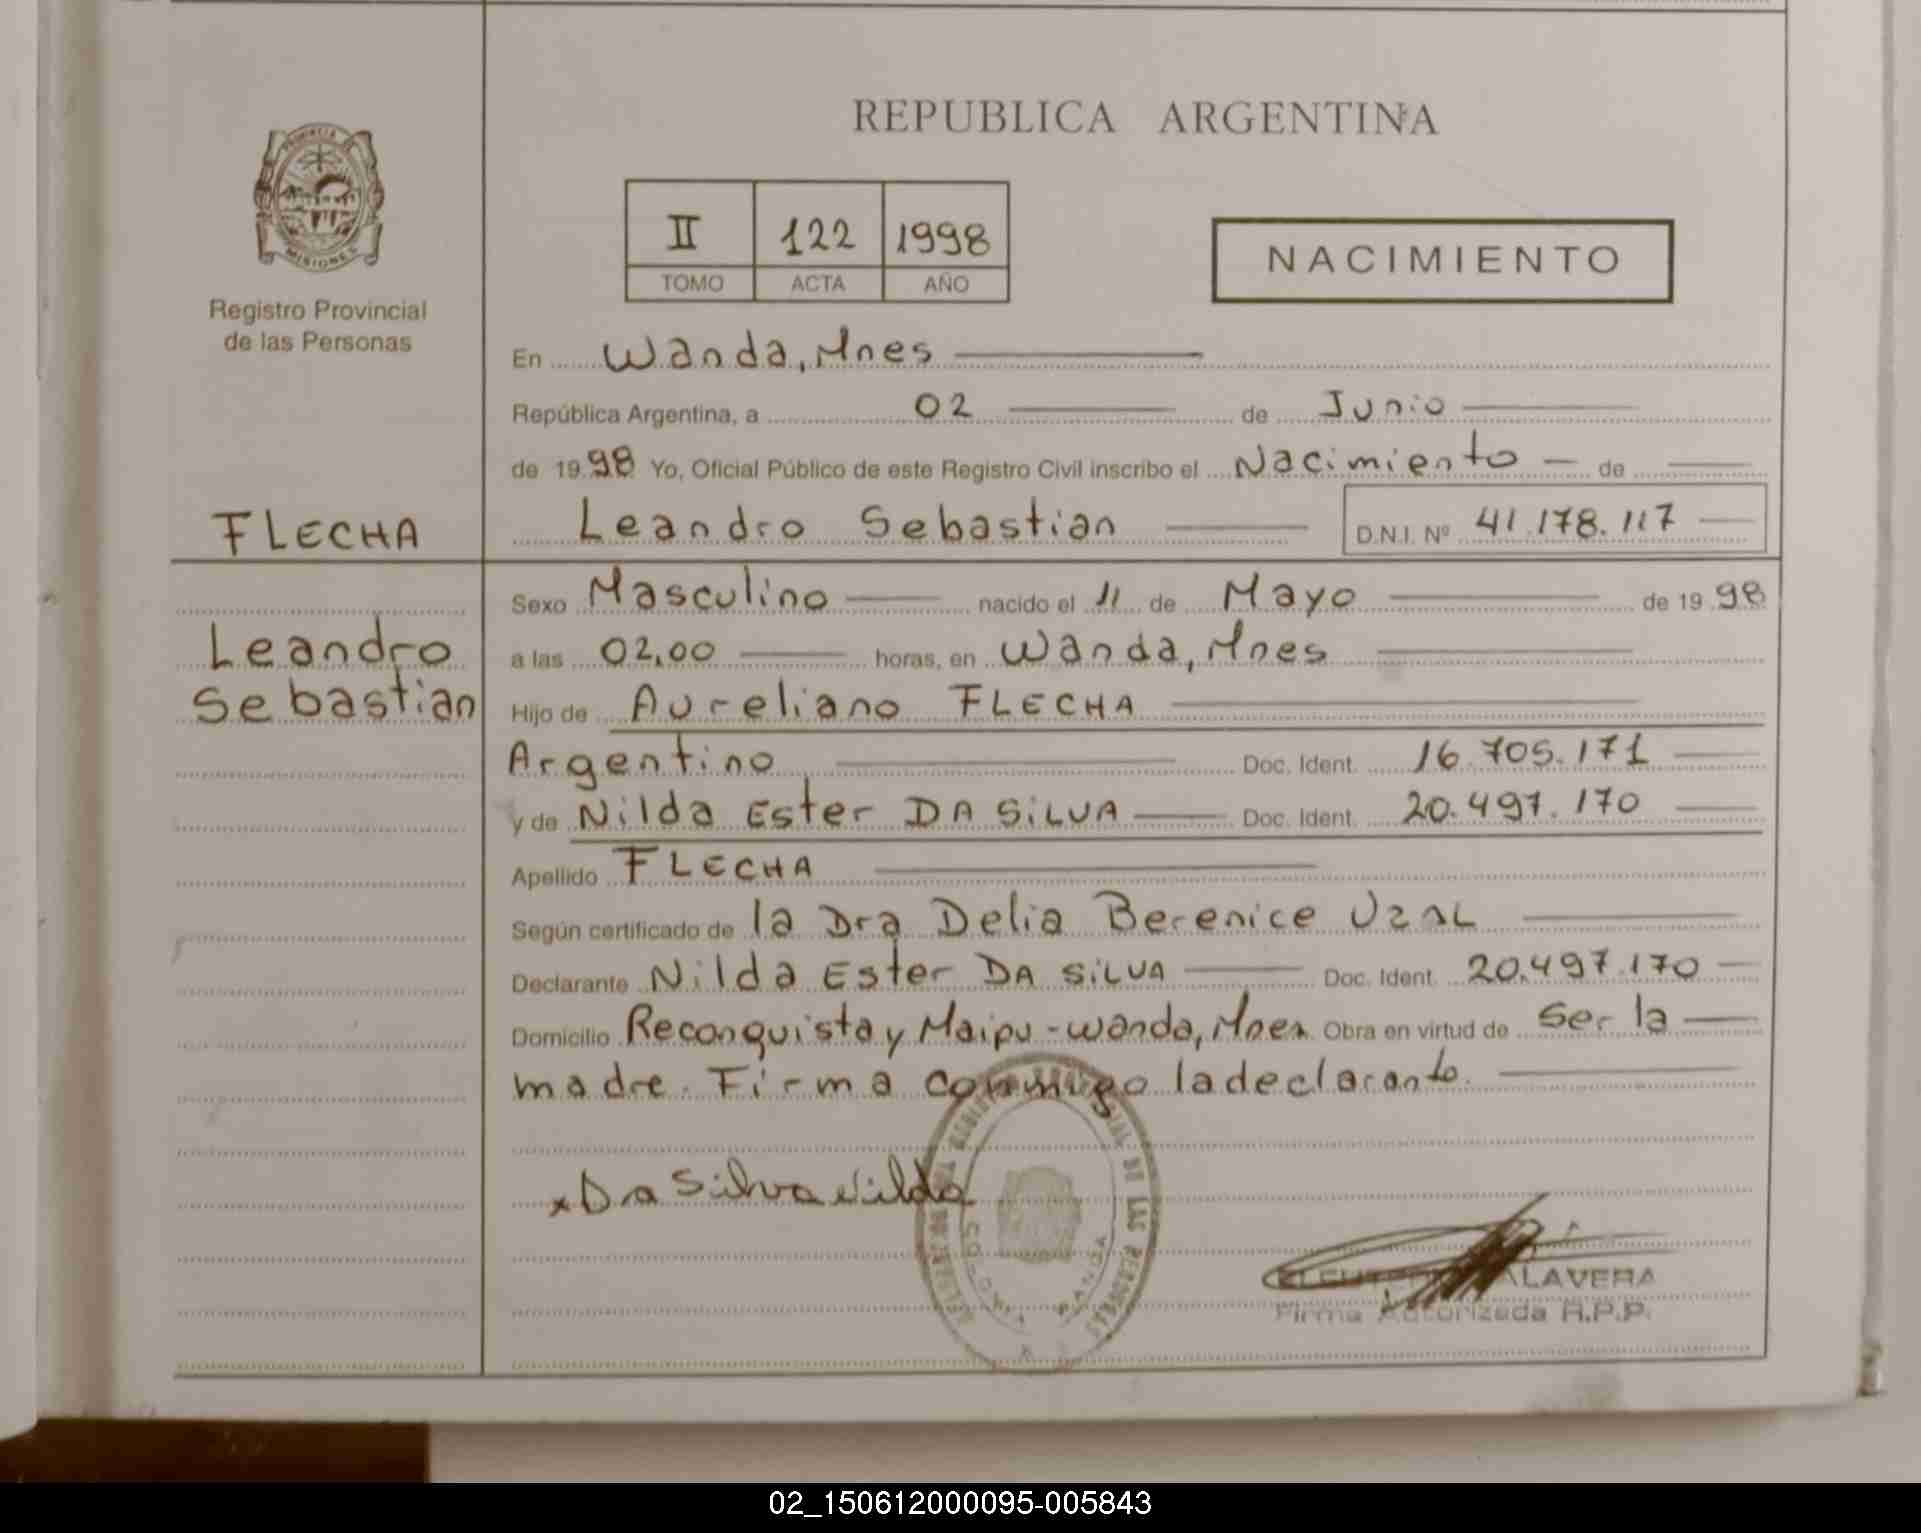 REPUBLICA ARGENTINA
PROVINCIA DE
MISIONES
Registro Provincial
de las Personas
II 122 1998
TOMO ACTA AÑO
NACIMIENTO
En Wanda, Mnes
República Argentina, a 02 de Junio
de 1998 Yo, Oficial Público de este Registro Civil inscribo el Nacimiento de
FLECHA
Leandro Sebastian D.N.I. Nº 41.178.117
Leandro
Sebastian
Sexo Masculino nacido el 11 de Mayo de 1998
a las 02,00 horas, en Wanda, Mnes
Hijo de Aureliano FLECHA
Argentino Doc. Ident. 16.705.171
y de Nilda Ester DA SILVA Doc. Ident. 20.497.170
Apellido FLECHA
Según certificado de la Dra Delia Berenice Uzal
Declarante Nilda Ester DA SILVA Doc. Ident. 20.497.170
Domicilio Reconquista y Maipu - Wanda, Mnes Obra en virtud de Ser la
madre. Firma conmigo la declarante.
x Da Silva Nilda
DE LAS PERSONAS
WANDA
ALAVERA
Firma Autorizada R.P.P.
02_150612000095-005843